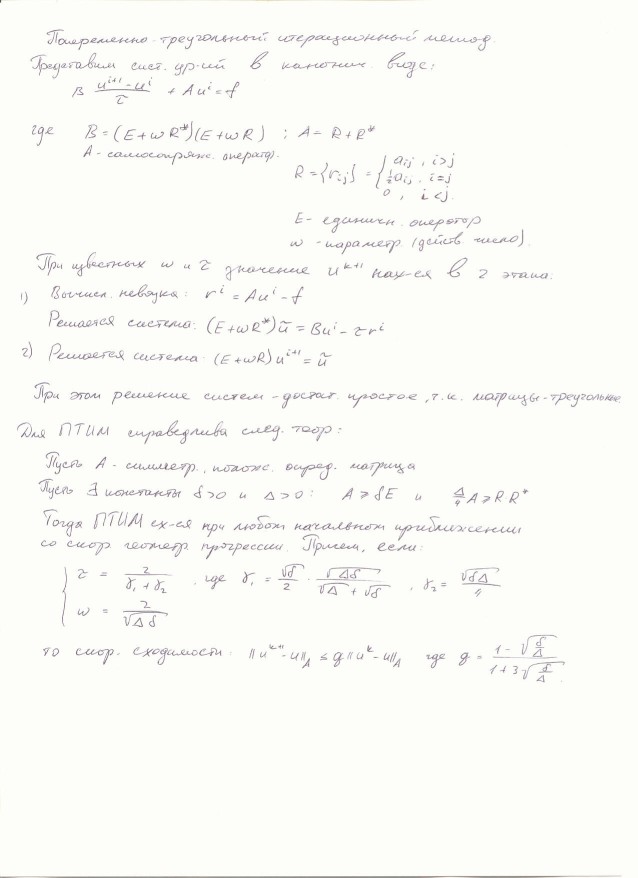 Попеременно-треугольный итерационный метод.
Представим сист. ур-ий в каконич. виде:
B (u^{i+1} - u^i)/τ + Au^i = f
где B = (E+ωR*)(E+ωR) ; A = R + R*
A - самосопряж. оператор.
R = {r_{ij}} = { a_{ij}, i>j
½a_{ij}, i=j
0, i<j.
E - единичн. оператор
ω - параметр (действ. число).
При известных ω и τ значение u^{k+1} нах-ся в 2 этапа:
1) Вычисл. невязка: r^i = Au^i - f
Решается система: (E+ωR*)ũ = Bu^i - τr^i
2) Решается система: (E+ωR)u^{i+1} = ũ
При этом решение систем - достат. простое, т.к. матрицы - треугольные
Для ПТИМ справедлива след. теор:
Пусть A - симметр., полож. опред. матрица
Пусть ∃ константы δ>0 и Δ>0: A ≥ δE и Δ/4 A ≥ R R*
Тогда ПТИМ сх-ся при любом начальном приближении
со скор. геометр. прогрессии. Причем, если:
{ τ = 2/(γ₁+γ₂), где γ₁ = √δ/2 · √(Δδ)/(√Δ+√δ), γ₂ = √(δΔ)/4
ω = 2/√(Δδ)
то скор. сходимости: ||u^{k+1} - u||_A ≤ q||u^k - u||_A где q = (1 - √(δ/Δ))/(1 + 3√(δ/Δ)).